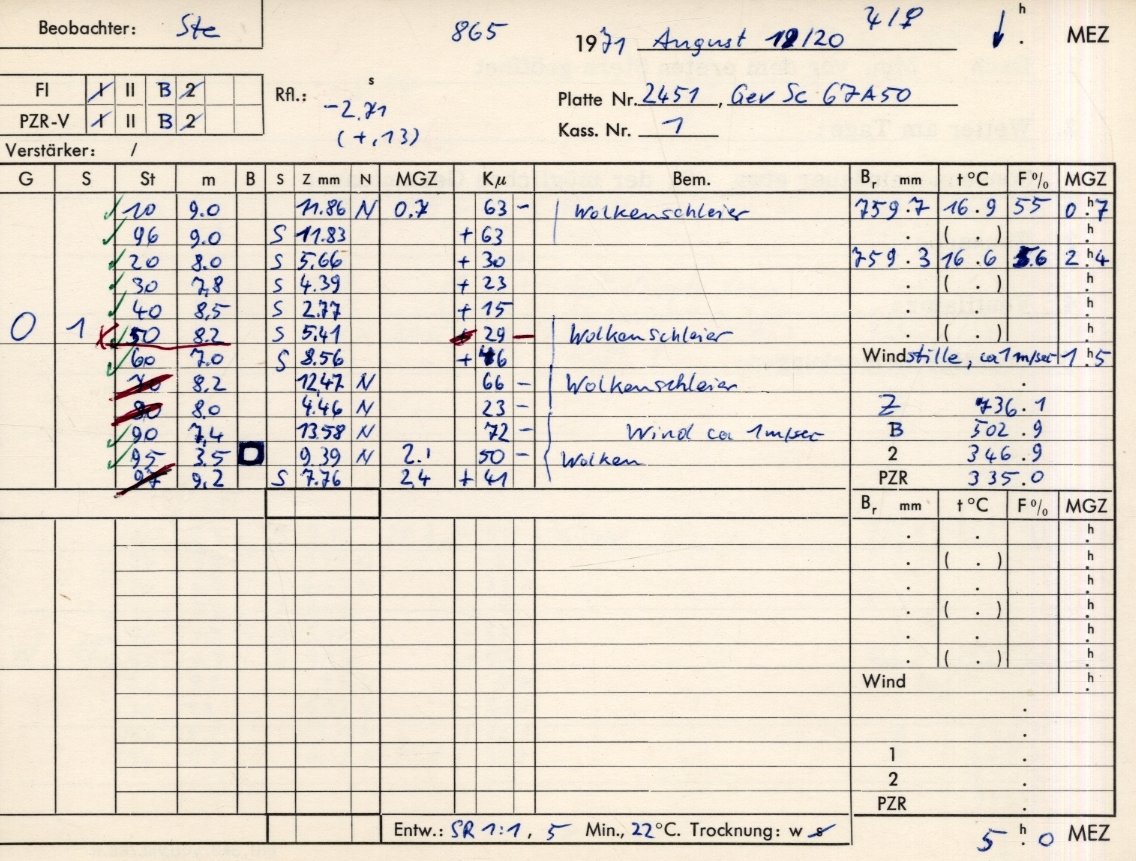 Beobachter: Ste
865
1971 August 19/20
h . MEZ
FI 1 II B 2
PZR-V 1 II B 2
Rfl.: s -2.71
(+,13)
Platte Nr. 2451, Gev Sc 67A50
Kass. Nr. 1
Verstärker: /
G S St m B S Z mm N MGZ Kμ Bem. Br mm t °C F % MGZ
10 9.0 11.86 N 0.7 63 - Wolkenschleier 759.7 16.9 55 0h.7
96 9.0 S 11.83 + 63 . ( . ) h.
20 8.0 S 5.66 + 30 759.3 16.6 56 2h.4
30 7,8 S 4.39 + 23 . ( . ) h.
40 8,5 S 2.77 + 15 . h.
0 1 50 8.2 S 5.41 29 - Wolkenschleier . ( . ) h.
60 7.0 S 8.56 + 46 Windstille, ca 1m/ser 1h.5
70 8.2 12.47 N 66 - Wolkenschleier .
80 8.0 4.46 N 23 - Z 736.1
90 7,4 13.58 N 72 - Wind ca 1m/ser B 502.9
95 3.5 9.39 N 2.1 50 - Wolken 2 346.9
97 9,2 S 7.76 2.4 + 41 PZR 335.0
Br mm t °C F % MGZ
. . h.
. ( . ) h.
. . h.
. ( . ) h.
. . h.
. ( . ) h.
Wind h.
.
.
1 .
2 .
PZR .
Entw.: SR 1:1, 5 Min., 22°C. Trocknung: w s
5h.0 MEZ